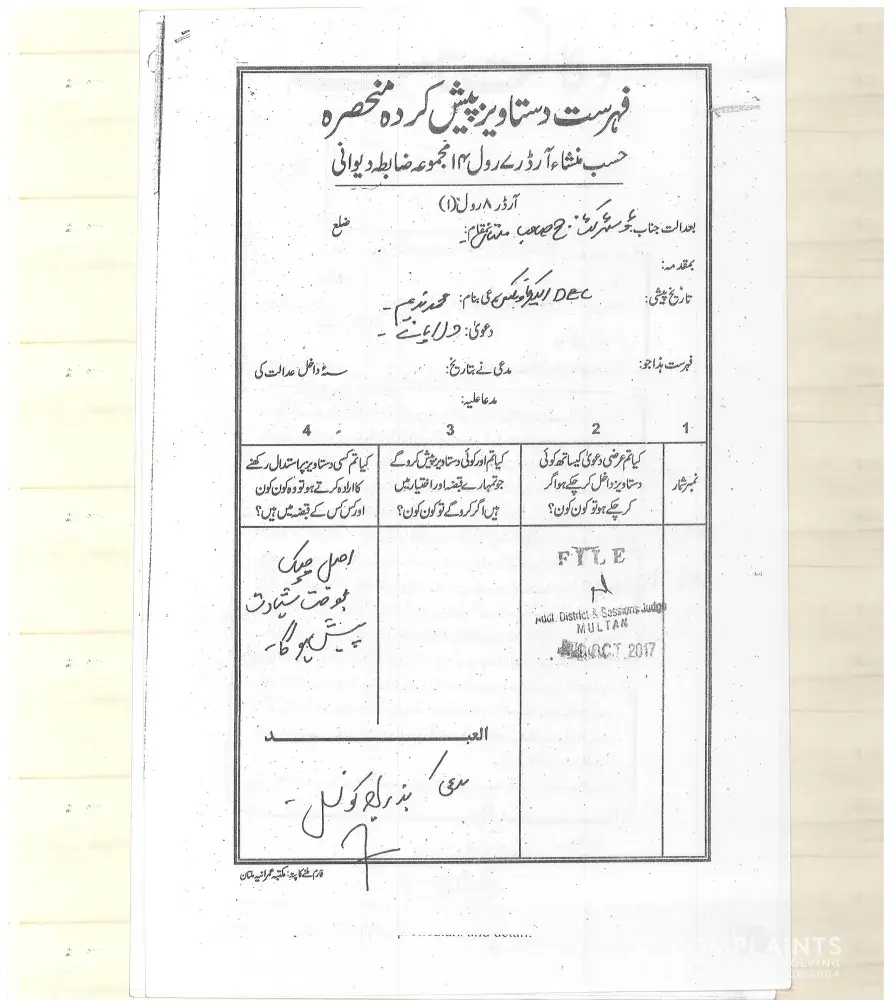 فہرست دستاویز پیش کردہ منحصرہ
حسب منشاء آرڈر ۷ رول ۱۴ مجموعہ ضابطہ دیوانی
آرڈر ۸ رول (۱)
بعدالت جناب ڈسٹرکٹ جج صاحب ملتان بمقام: ضلع
بمقدمہ:
تاریخ پیشی: DEC الیکٹرونکس بنام: محمد ندیم
دعویٰ: دلا پانے
فہرست ہذا جو: مدعی نے بتاریخ: سنہ داخل عدالت کی
مدعا علیہ:
1 2 3 4
نمبر شمار
کیا تم عرضی دعویٰ کیساتھ کوئی
دستاویز داخل کر چکے ہو اگر
کر چکے ہو تو کون کون؟
کیا تم اور کوئی دستاویز پیش کرو گے
جو تمہارے قبضہ اور اختیار میں
ہیں اگر کرو گے تو کون کون؟
کیا تم کسی دستاویز پر استدلال رکھنے
کا ارادہ کرتے ہو تو وہ کون کون
اور کس کس کے قبضہ میں ہیں؟
FILE
Addl. District & Sessions Judge
MULTAN
OCT 2017
اصل چیک
بوقت شہادت
پیش ہوگا۔
العبد
مدعی بذریعہ کونسل
فارم ملنے کا پتہ: مکتبہ عمرانیہ ملتان
COMPLAINTS